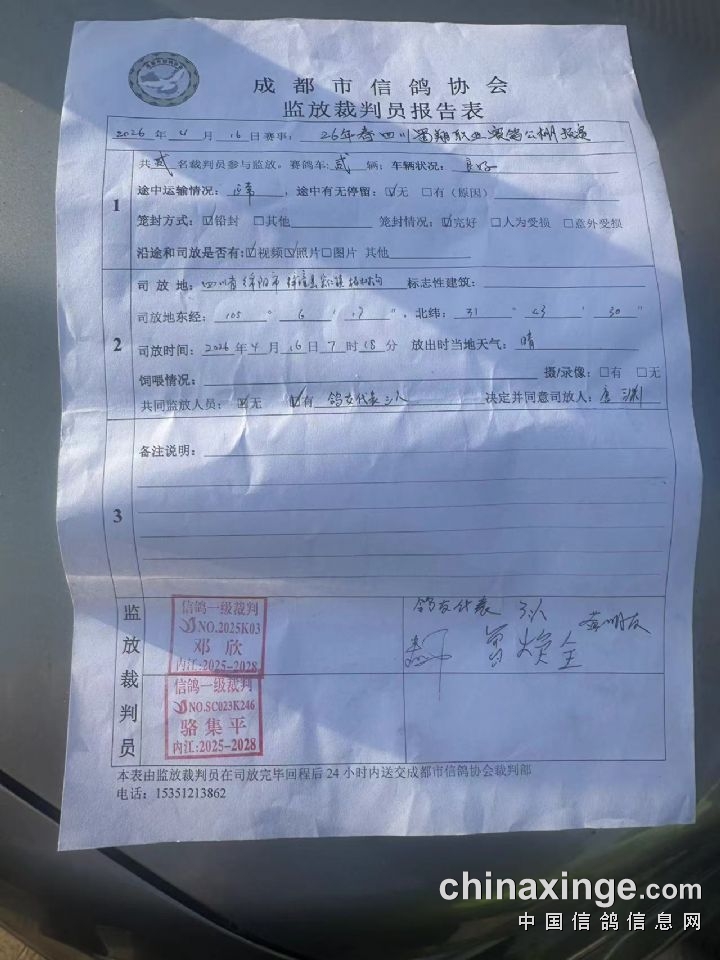 成都市信鸽协会
监放裁判员报告表
2026年4月16日赛事：26年春四川蜀翔职业赛鸽公棚预赛
1
共贰名裁判员参与监放。赛鸽车：贰辆；车辆状况：良好
途中运输情况：正常，途中有无停留：☑无 □有（原因）
笼封方式：☑铅封 □其他 笼封情况：☑完好 □人为受损 □意外受损
沿途和司放是否有：☑视频☑照片□图片 其他
2
司放地：四川省绵阳市 标志性建筑：
司放地东经：105°6′17″，北纬：31°23′30″
司放时间：2026年4月16日7时18分 放出时当地天气：晴
饲喂情况： 摄/录像：□有 □无
共同监放人员：☑无 ☑有 鸽友代表三人 决定并同意司放人：唐渊
3
备注说明：
监放裁判员
信鸽一级裁判
NO.2025K03
邓欣
内江:2025-2028
信鸽一级裁判
NO.SC023K246
骆集平
内江:2025-2028
鸽友代表
本表由监放裁判员在司放完毕回程后24小时内送交成都市信鸽协会裁判部
电话：15351213862
chinaxinge.com
中国信鸽信息网